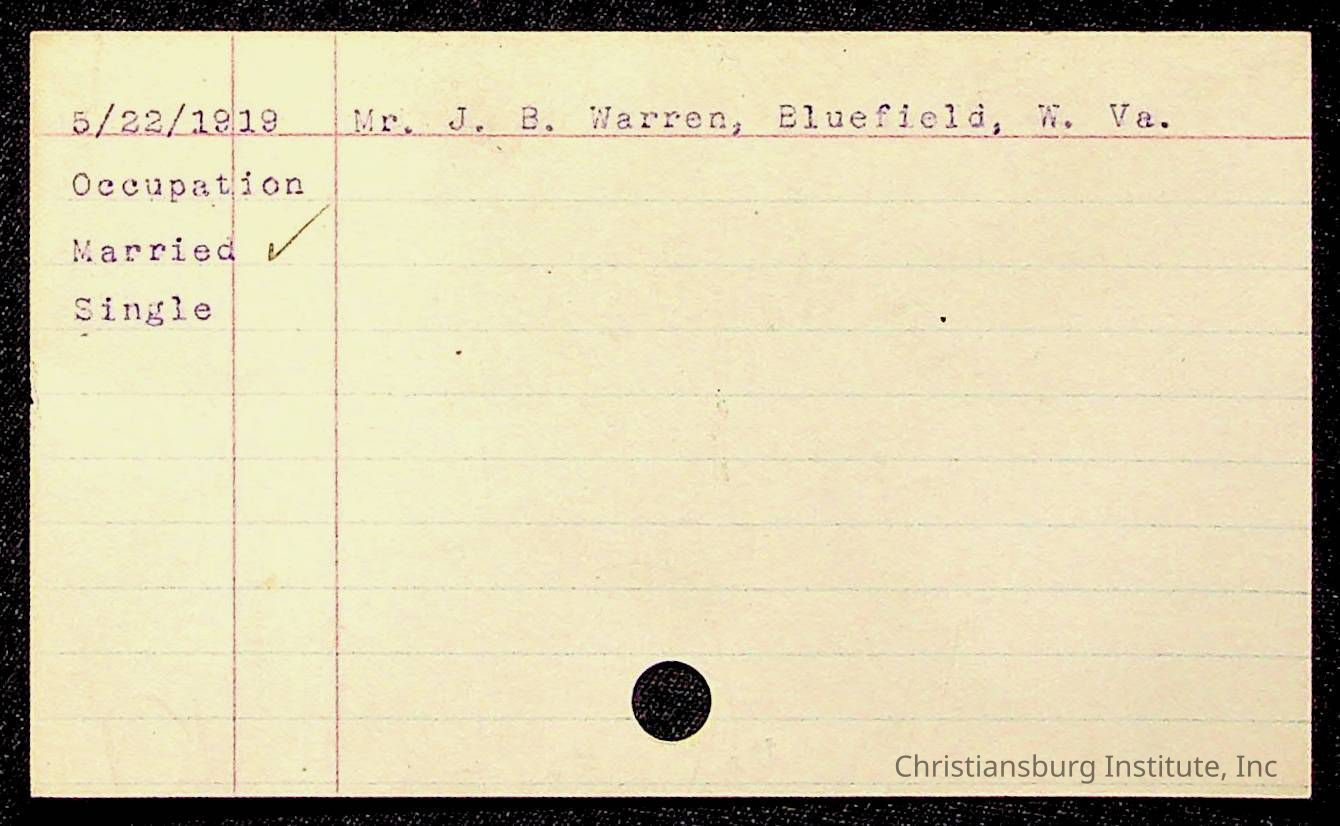 5/22/1919 Mr. J. B. Warren, Bluefield, W. Va.
Occupation
Married ✓
Single
Christiansburg Institute, Inc